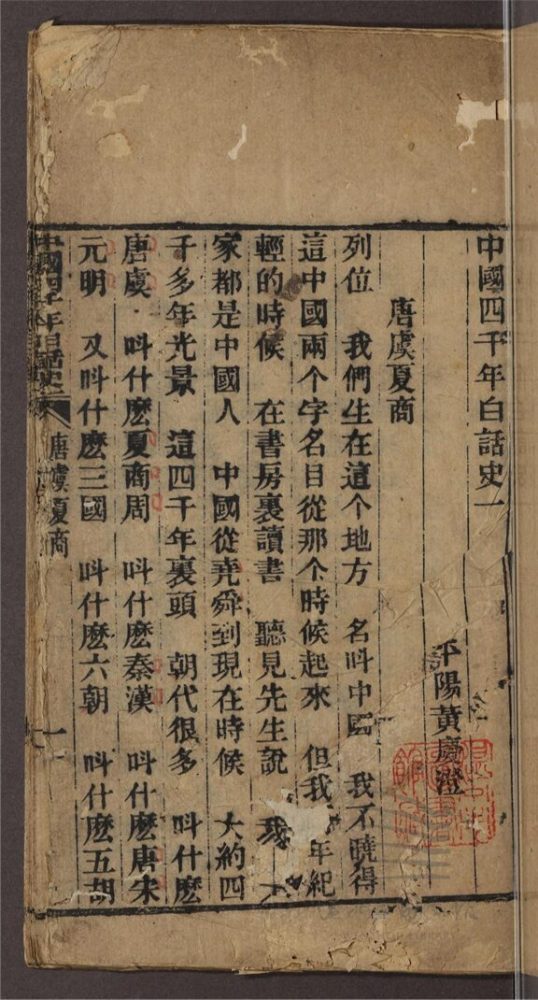 中國四千年白話史一
平陽黃慶澄
唐虞夏商
列位　我們生在這个地方　名呌中國　我不曉得
這中國兩个字名目從那个時候起來　但我　年紀
輕的時候　在書房裏讀書　聽見先生說　我　大
家都是中國人　中國從堯舜到現在時候　大約四
千多年光景　這四千年裏頭　朝代很多　呌什麽
唐虞　呌什麽夏商周　呌什麽秦漢　呌什麽唐宋
元明　又呌什麽三國　呌什麽六朝　呌什麽五胡
中國四千年白話史
唐虞夏商
一